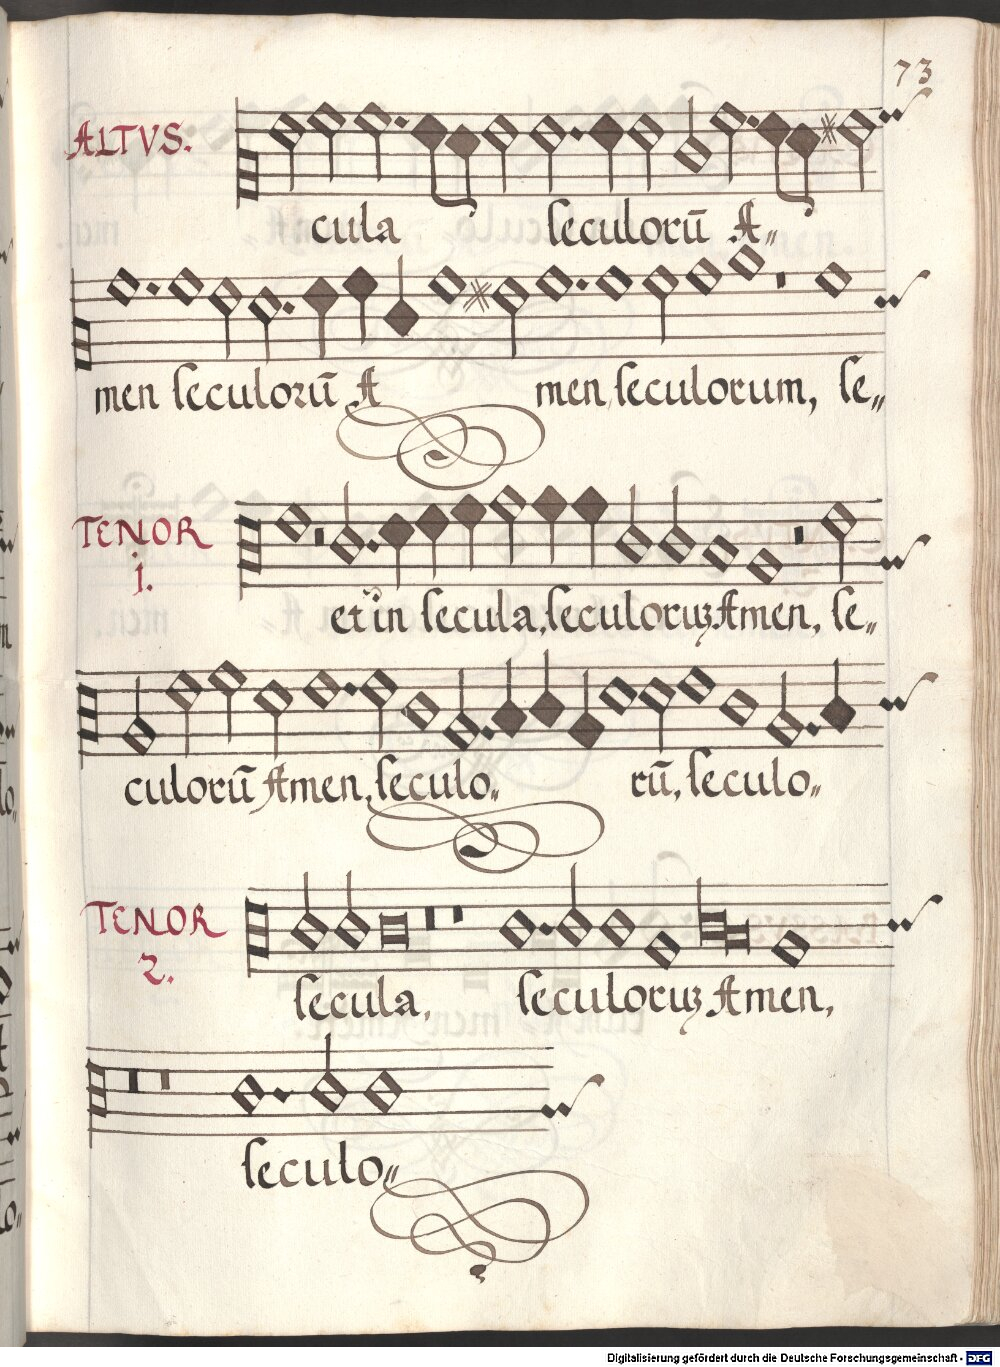 73
ALTVS.
cula seculorū A„
men seculorū A men, seculorum, se„
TENOR
1.
et in secula, seculoruʒ Amen, se„
culorū Amen, seculo„ rū, seculo„
TENOR
2.
secula, seculoruʒ Amen,
seculo„
Digitalisierung gefördert durch die Deutsche Forschungsgemeinschaft - DFG